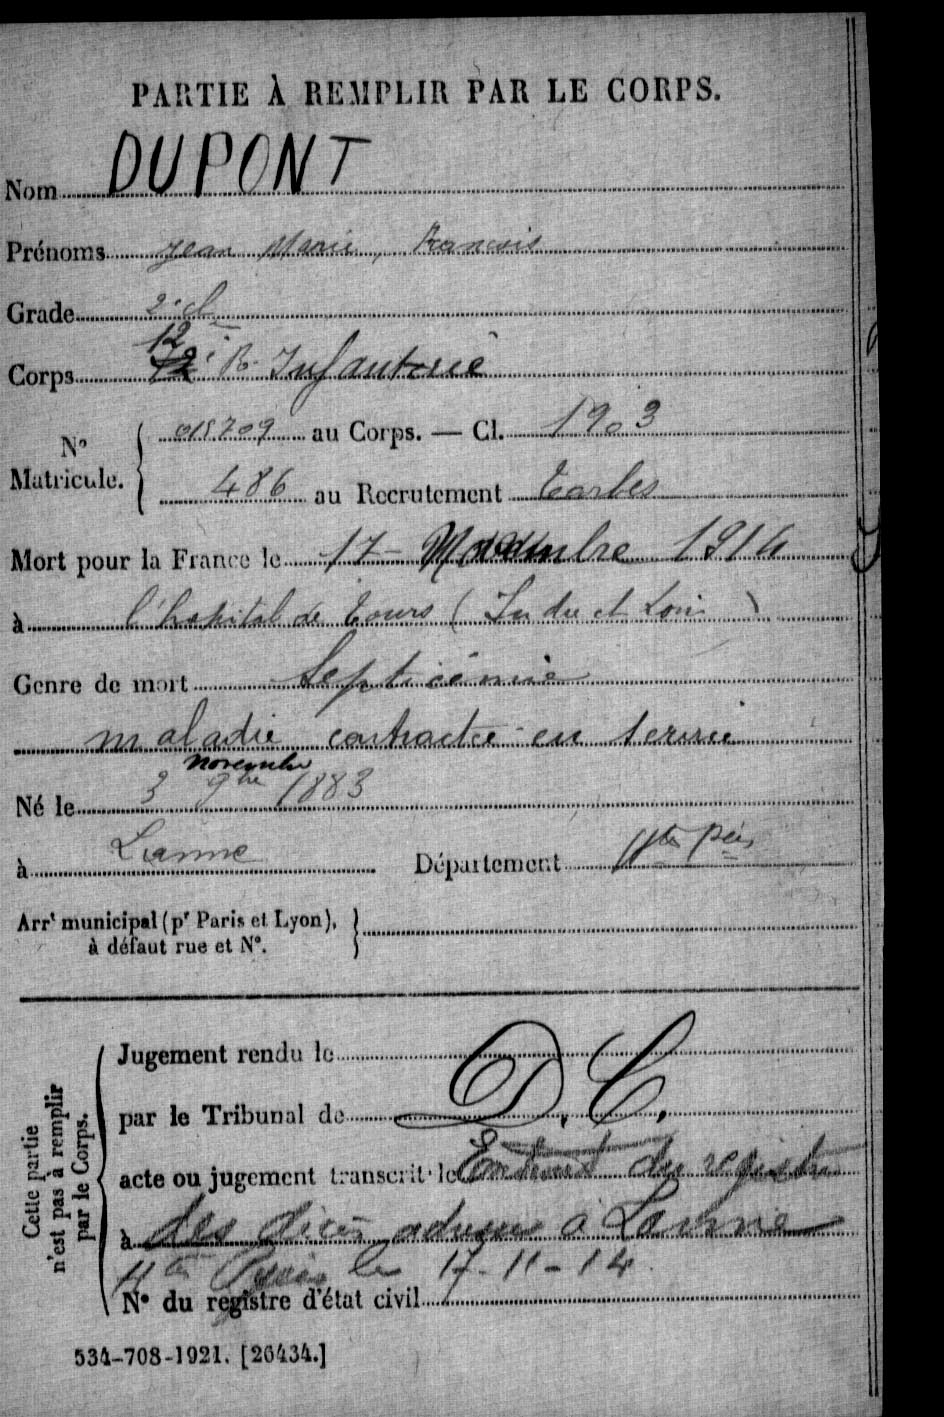 PARTIE À REMPLIR PAR LE CORPS.
Nom DUPONT
Prénoms Jean Marie, Francois
Grade 2e cl
12
Corps 12e R. Infanterie
No Matricule. 018709 au Corps. — Cl. 1903
486 au Recrutement Tarbes
Mort pour la France le 17 Novembre 1914
à l'hopital de Tours (Indre et Loire)
Genre de mort Septicémie
maladie contractée en service
novembre
Né le 3 9bre 1883
à Lanne Département Htes Pées
Arrt municipal (pr Paris et Lyon),
à défaut rue et No.
Cette partie
n'est pas à remplir
par le Corps.
Jugement rendu le
par le Tribunal de D. C.
acte ou jugement transcrit le Extrait du registre
à des décès adressé à Lanne
Htes Pyrées le 17-11-14.
No du registre d'état civil
534-708-1921. [26434.]